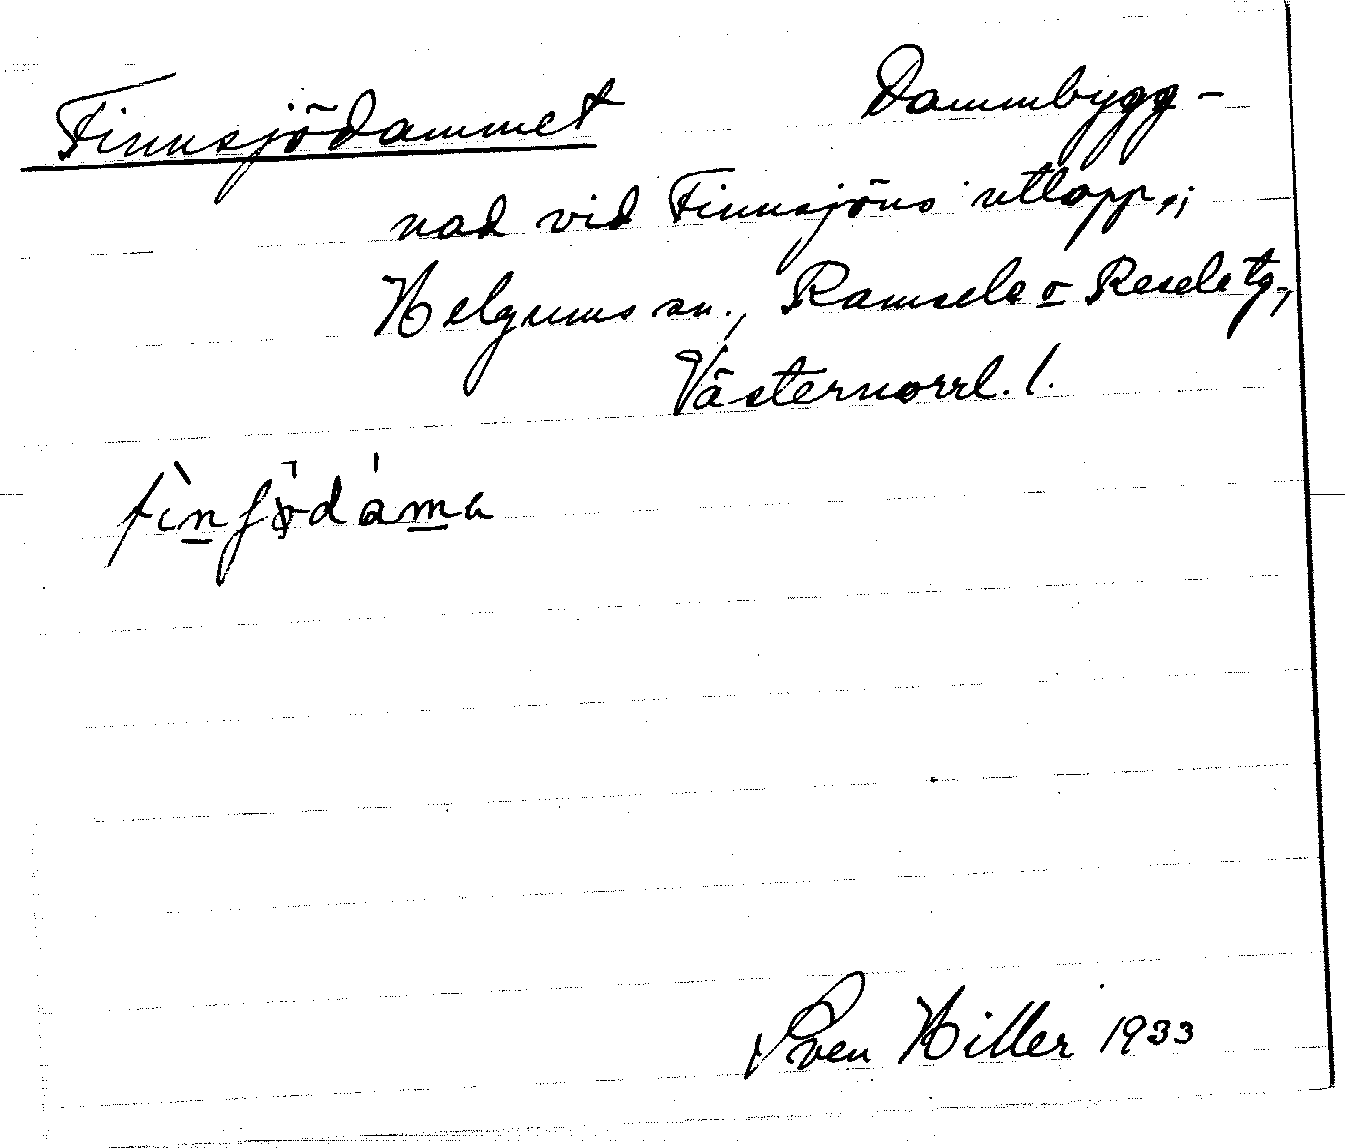 Finnsjödammet Dammbygg-
nad vid Finnsjöns utlopp,;
Helgums sn., Ramsele o Resele tg,
Västernorrl. l.
fìn̲ʃödám̲a
Sven Hiller 1933